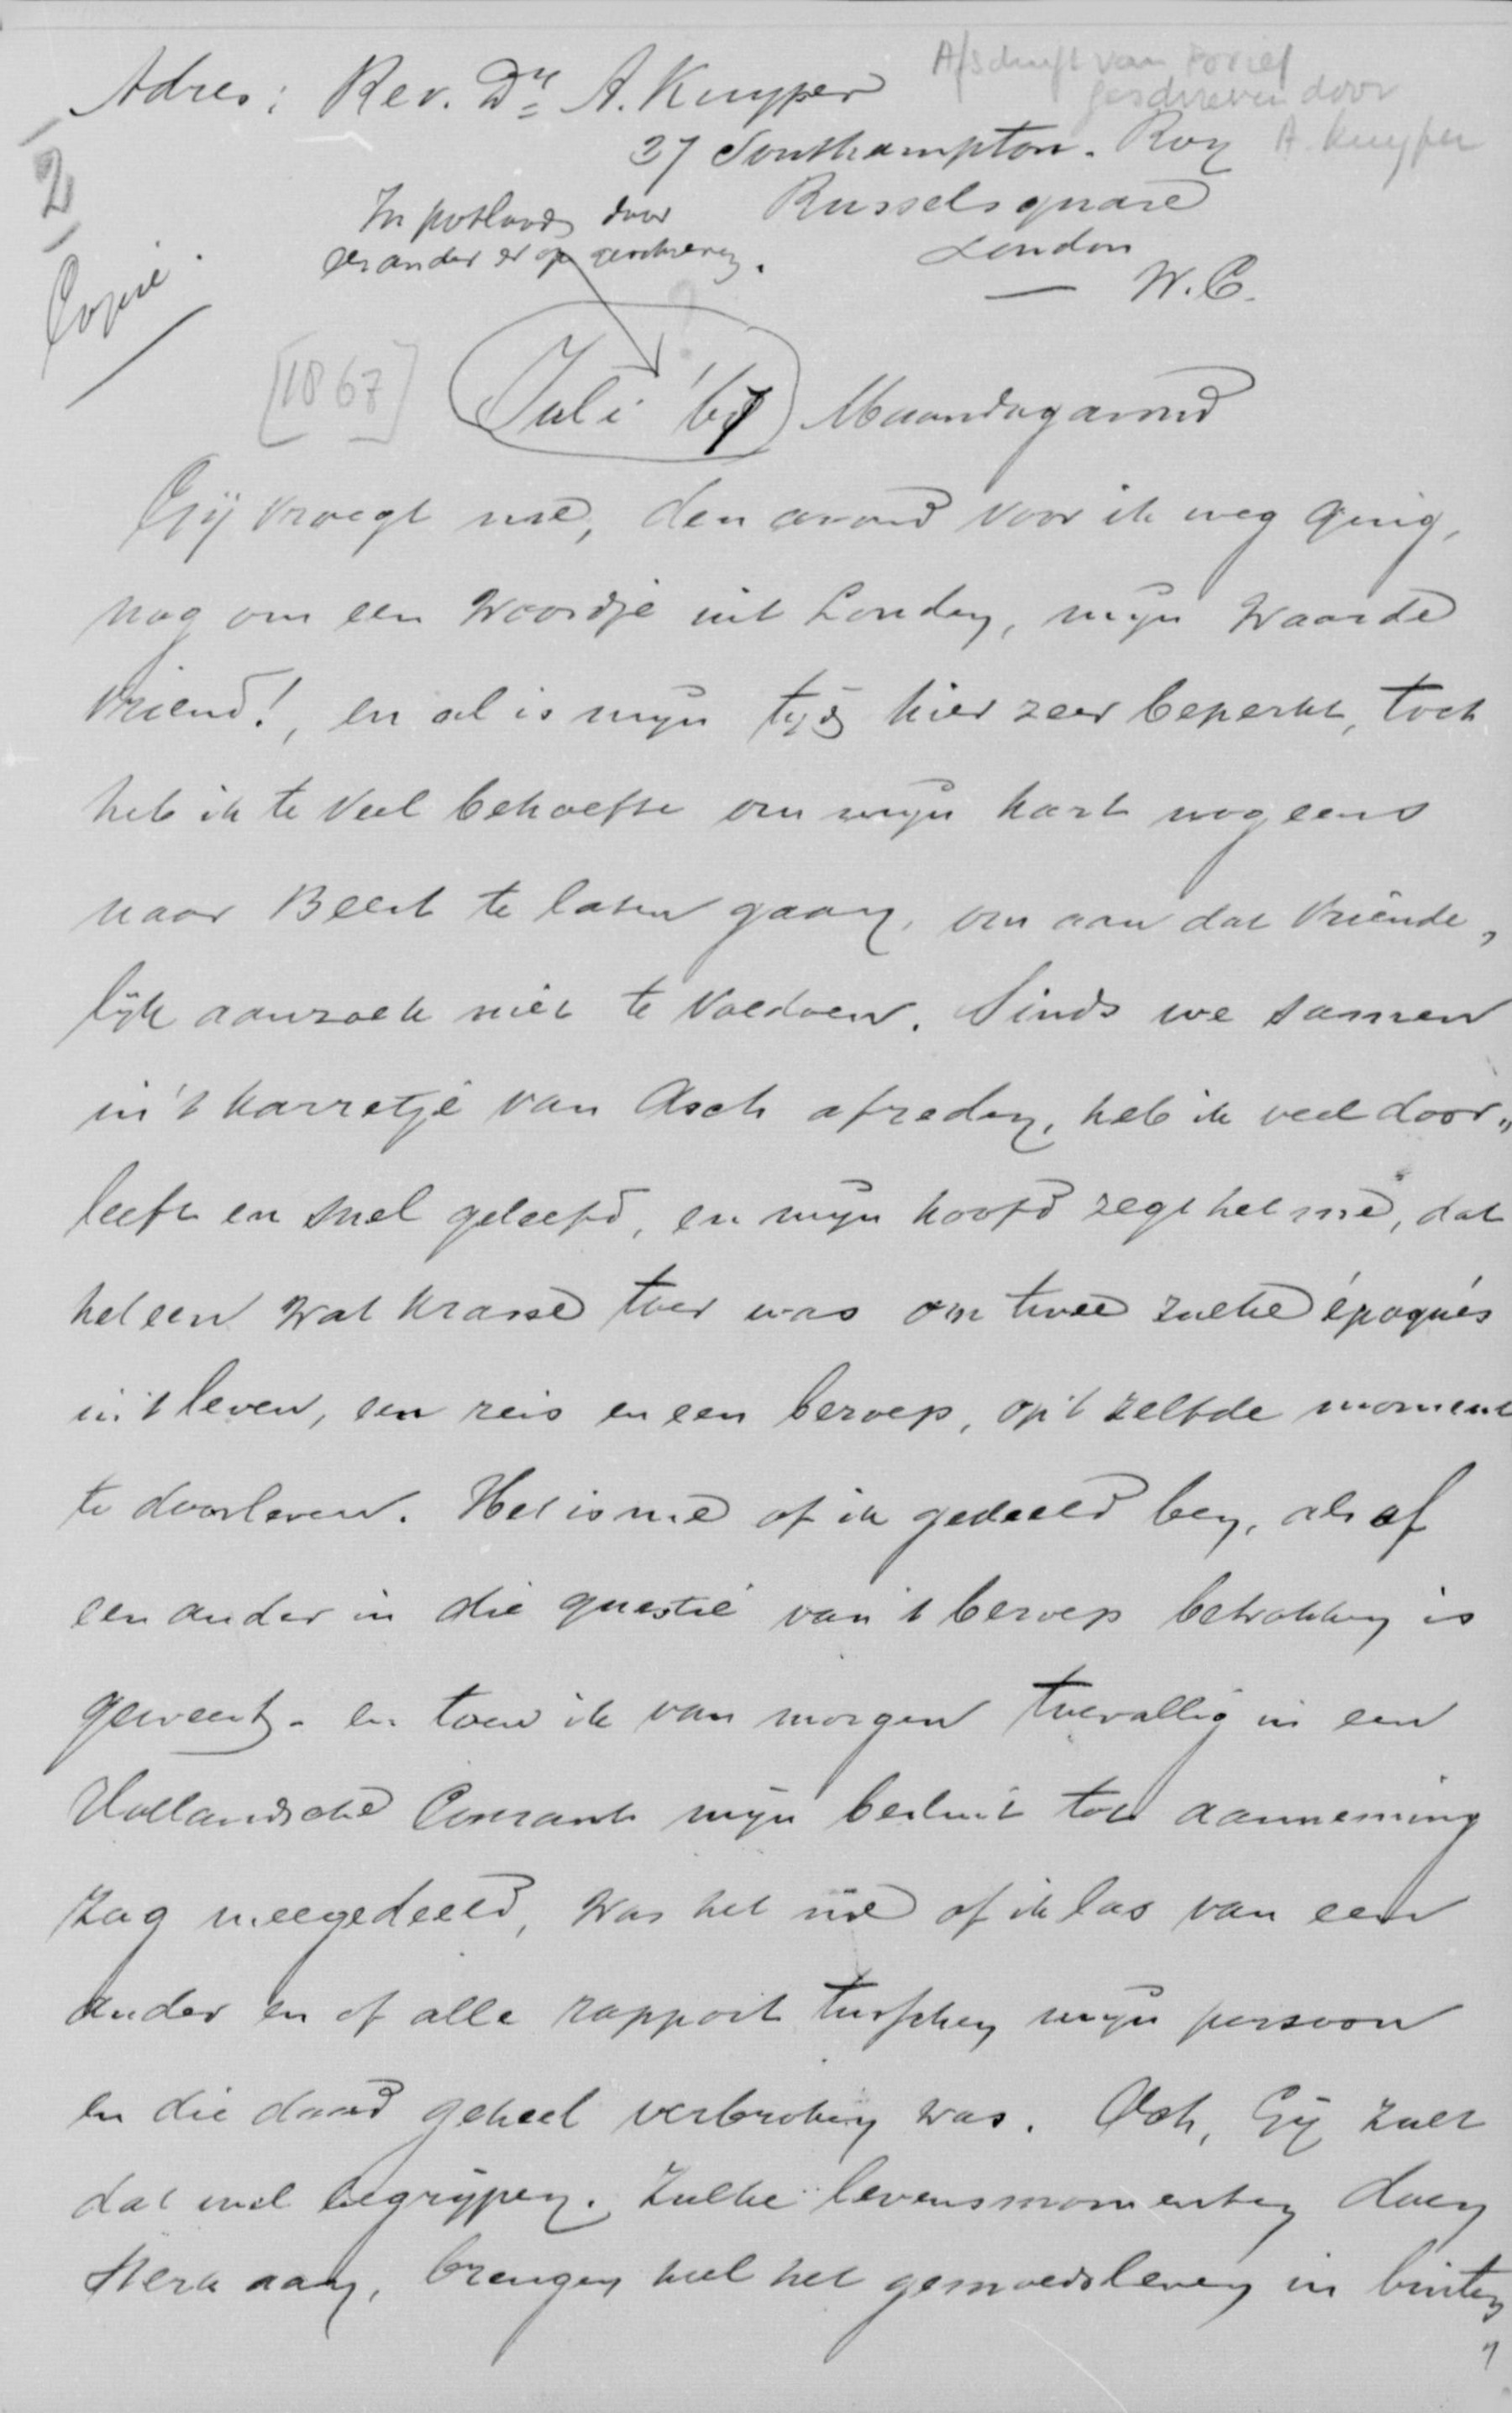 Afschrift van brief
geschreven door
A. Kuyper
Adres: Rev. Dr. A. Kuyper
37 Southampton. Roy
Russelsquare
London
W. C.
2
Copie.
In potlood door
een ander er op geschreven.
[1867]
Juli '67 Maandagavond
Gij vroegt me, den avond voor ik weg ging,
nog om een woordje uit Londen, mijn waarde
vriend!, en al is mijn tijd hier zeer beperkt, toch
heb ik te veel behoefte om mijn hart nog eens
naar Beest te laten gaan, om aan dat vriende„
lijk aanzoek niet te voldoen. Sinds we samen
in 't karretje van Asch afreden, heb ik veel door„
leefd en snel geleefd, en mijn hoofd zegt het me, dat
het een wat krasse toer was om twee zulke époques
in 't leven, een reis en een beroep, op 't zelfde moment
te doorleven. Het is me of ik gedeeld ben, als of
een ander in die questie van 't beroep betrokken is
geweest – en toen ik van morgen toevallig in een
Hollandsche Courant mijn besluit tot aanneming
zag meegedeeld, was het me of ik las van een
ander en of alle rapport tusschen mijn persoon
en die daad geheel verbroken was. Och, Gij zult
dat wel begrijpen. Zulke levensmomenten doen
sterk aan, brengen heel het gemoedsleven in buiten
„